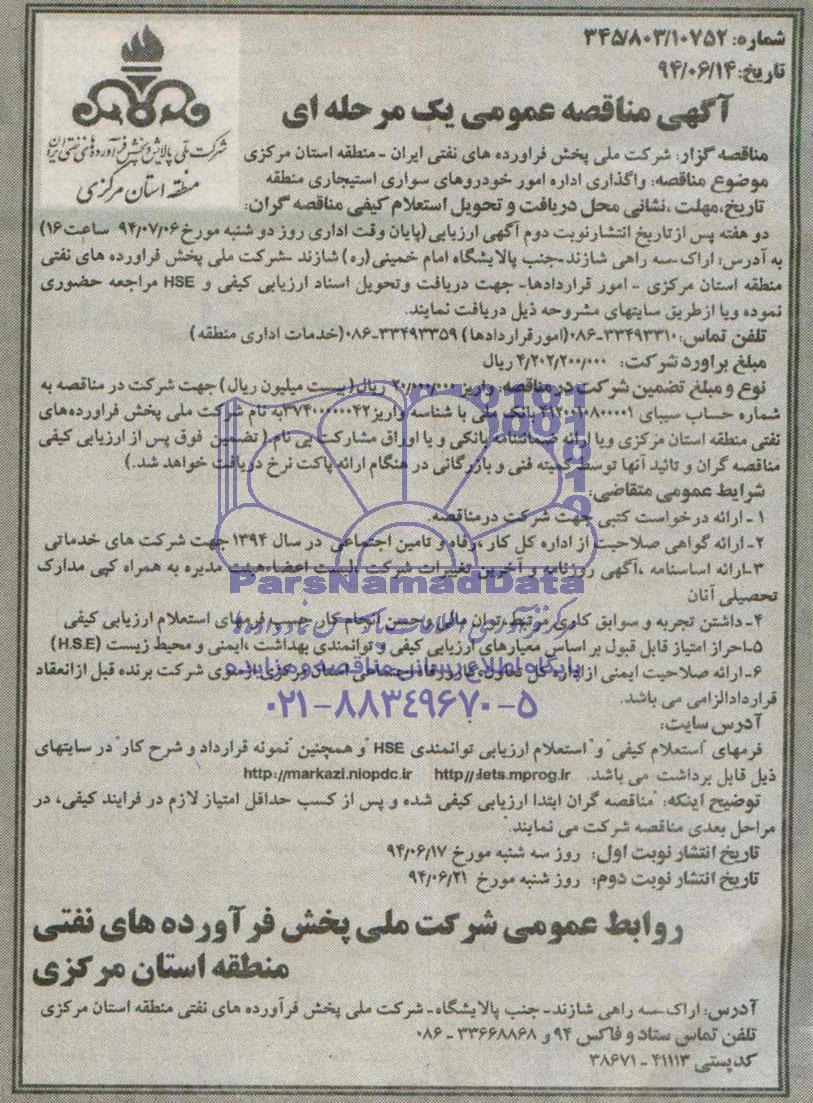 شماره: ۳۴۵/۸۰۳/۱۰۷۵۲
تاریخ: ۹۴/۰۶/۱۴
آگهی مناقصه عمومی یک مرحله ای
شرکت ملی پالایش و پخش فرآورده های نفتی ایران
منطقه استان مرکزی
مناقصه گزار: شرکت ملی پخش فراورده های نفتی ایران - منطقه استان مرکزی
موضوع مناقصه: واگذاری اداره امور خودروهای سواری استیجاری منطقه
تاریخ،مهلت ،نشانی محل دریافت و تحویل استعلام کیفی مناقصه گران:
دو هفته پس از تاریخ انتشارنوبت دوم آگهی ارزیابی(پایان وقت اداری روز دو شنبه مورخ ۹۴/۰۷/۰۶ ساعت ۱۶)
به آدرس: اراک-سه راهی شازند-جنب پالایشگاه امام خمینی (ره) شازند -شرکت ملی پخش فراورده های نفتی
منطقه استان مرکزی - امور قراردادها- جهت دریافت وتحویل اسناد ارزیابی کیفی و HSE مراجعه حضوری
نموده ویا ازطریق سایتهای مشروحه ذیل دریافت نمایند.
تلفن تماس: ۳۳۴۹۳۳۱۰-۰۸۶(امورقراردادها) ۳۳۴۹۳۳۵۹-۰۸۶(خدمات اداری منطقه)
مبلغ براورد شرکت: ۴/۲۰۲/۲۰۰/۰۰۰ ریال
نوع و مبلغ تضمین شرکت درمناقصه: واریز ۲۰/۰۰۰/۰۰۰ ریال (بیست میلیون ریال) جهت شرکت در مناقصه به
شماره حساب سیبای بانک ملی با شناسه واریز به نام شرکت ملی پخش فراورده‌های
نفتی منطقه استان مرکزی ویا ارائه ضمانتنامه بانکی و یا اوراق مشارکت بی نام (تضمین فوق پس از ارزیابی کیفی
مناقصه گران و تائید آنها توسط کمیته فنی و بازرگانی در هنگام ارائه پاکت نرخ دریافت خواهد شد.)
شرایط عمومی متقاضی:
۱- ارائه درخواست کتبی جهت شرکت درمناقصه.
۲- ارائه گواهی صلاحیت از اداره کل کار ،رفاه و تامین اجتماعی در سال ۱۳۹۴ جهت شرکت های خدماتی
۳-ارائه اساسنامه ،آگهی روزنامه و آخرین تغییرات شرکت ،لیست اعضاء هیئت مدیره به همراه کپی مدارک
تحصیلی آنان
ParsNamadData
۴- داشتن تجربه و سوابق کاری مرتبط،توان مالی وحسن انجام کار حسب فرمهای استعلام ارزیابی کیفی
۵-احراز امتیاز قابل قبول بر اساس معیارهای ارزیابی کیفی و توانمندی بهداشت ،ایمنی و محیط زیست (H.S.E)
پایگاه اطلاع رسانی مناقصه و مزایده
۶- ارائه صلاحیت ایمنی از اداره کل تعاون،کار و رفاه اجتماعی استان مرکزی ازسوی شرکت برنده قبل ازانعقاد
قراردادالزامی می باشد.
۰۲۱-۸۸۳۴۹۶۷۰-۵
آدرس سایت:
فرمهای "استعلام کیفی" و "استعلام ارزیابی توانمندی HSE" و همچنین "نمونه قرارداد و شرح کار" در سایتهای
ذیل قابل برداشت می باشد. http://iets.mprog.ir http://markazi.niopdc.ir
توضیح اینکه: "مناقصه گران ابتدا ارزیابی کیفی شده و پس از کسب حداقل امتیاز لازم در فرایند کیفی، در
مراحل بعدی مناقصه شرکت می نمایند."
تاریخ انتشار نوبت اول: روز سه شنبه مورخ ۹۴/۰۶/۱۷
تاریخ انتشار نوبت دوم: روز شنبه مورخ ۹۴/۰۶/۲۱
روابط عمومی شرکت ملی پخش فرآورده های نفتی
منطقه استان مرکزی
آدرس: اراک-سه راهی شازند- جنب پالایشگاه- شرکت ملی پخش فرآورده های نفتی منطقه استان مرکزی
تلفن تماس ستاد و فاکس ۹۴ و ۳۳۶۶۸۸۶۸ - ۰۸۶
کدپستی ۴۱۱۱۳ - ۳۸۶۷۱